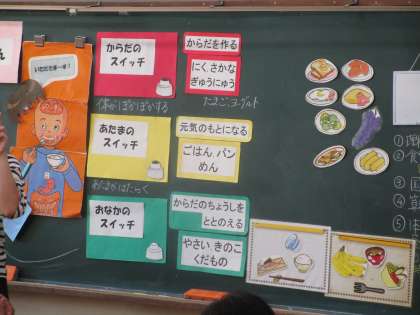 ん
いただきまーす！
からだの
スイッチ
からだを作る
にく、さかな
ぎゅうにゅう
体がぽかぽかする
たまご、ヨーグルト
あたまの
スイッチ
元気のもとになる
ごはん、パン
めん
おなかの
スイッチ
からだのちょうしを
ととのえる
やさい きのこ
くだもの
①
②
③
④
⑤